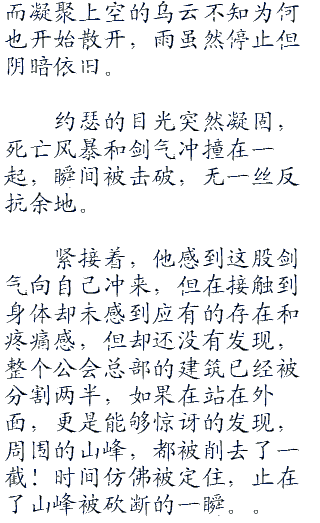 而凝聚上空的乌云不知为何
也开始散开，雨虽然停止但
阴暗依旧。
约瑟的目光突然凝固，
死亡风暴和剑气冲撞在一
起，瞬间被击破，无一丝反
抗余地。
紧接着，他感到这股剑
气向自己冲来，但在接触到
身体却未感到应有的存在和
疼痛感，但却还没有发现，
整个公会总部的建筑已经被
分割两半，如果在站在外
面，更是能够惊讶的发现，
周围的山峰，都被削去了一
截！时间仿佛被定住，止在
了山峰被砍断的一瞬。。